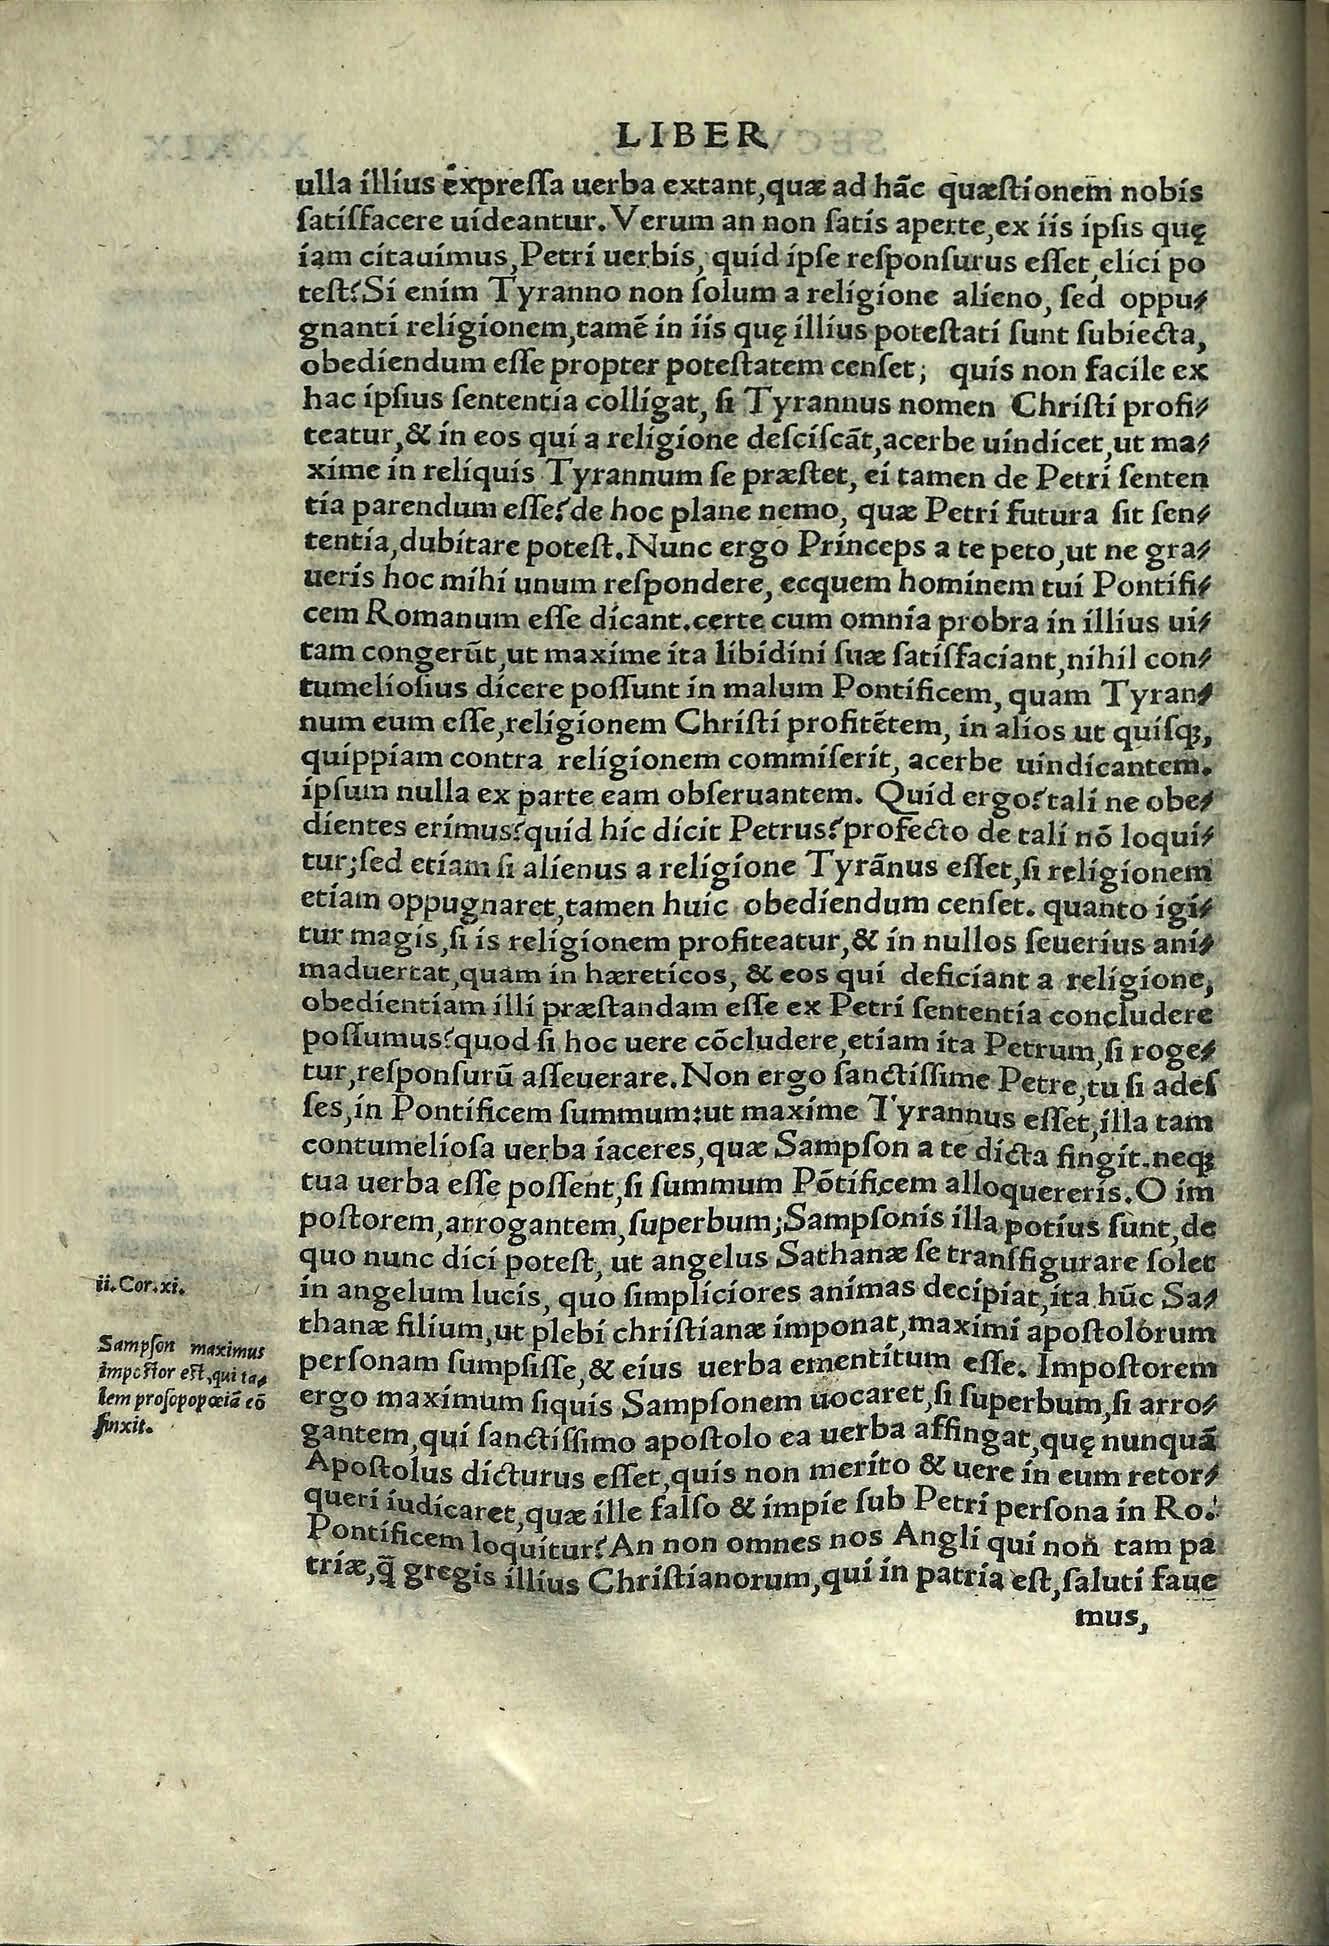 LIBER
ulla illius expreſſa uerba extant, quæ ad hãc quæſtionem nobis
ſatiſfacere uideantur. Verum an non ſatis aperte, ex iis ipſis quę
iam citauimus, Petri uerbis, quid ipſe reſponſurus eſſet, elici po
teſt? Si enim Tyranno non ſolum a religione alieno, ſed oppu⸗
gnanti religionem, tamẽ in iis quę illius poteſtati ſunt ſubiecta,
obediendum eſſe propter poteſtatem cenſet; quis non facile ex
hac ipſius ſententia colligat, ſi Tyrannus nomen Chriſti profi⸗
teatur, & in eos qui a religione deſciſcãt, acerbe uindicet, ut ma⸗
xime in reliquis Tyrannum ſe præſtet, ei tamen de Petri ſenten
tia parendum eſſe? de hoc plane nemo, quæ Petri futura ſit ſen⸗
tentia, dubitare poteſt. Nunc ergo Princeps a te peto, ut ne gra⸗
ueris hoc mihi unum reſpondere, ecquem hominem tui Pontifi⸗
cem Romanum eſſe dicant. certe cum omnia probra in illius ui⸗
tam congerũt, ut maxime ita libidini ſuæ ſatiſfaciant, nihil con⸗
tumelioſius dicere poſſunt in malum Pontificem, quam Tyran⸗
num eum eſſe, religionem Chriſti profitẽtem, in alios ut quiſq;,
quippiam contra religionem commiſerit, acerbe uindicantem.
ipſum nulla ex parte eam obſeruantem. Quid ergo? tali ne obe⸗
dientes erimus? quid hic dicit Petrus? profecto de tali nõ loqui⸗
tur; ſed etiam ſi alienus a religione Tyrãnus eſſet, ſi religionem
etiam oppugnaret, tamen huic obediendum cenſet. quanto igi⸗
tur magis, ſi is religionem profiteatur, & in nullos ſeuerius ani⸗
maduertat, quam in hæreticos, & eos qui deficiant a religione,
obedientiam illi præſtandam eſſe ex Petri ſententia concludere
poſſumus? quod ſi hoc uere cõcludere, etiam ita Petrum, ſi roge⸗
tur, reſponſurũ aſſeuerare. Non ergo ſanctiſſime Petre, tu ſi adeſ
ſes, in Pontificem ſummum: ut maxime Tyrannus eſſet, illa tam
contumelioſa uerba iaceres, quæ Sampſon a te dicta fingit. neq;
tua uerba eſſe poſſent, ſi ſummum Põtificem alloquereris. O im
poſtorem, arrogantem, ſuperbum; Sampſonis illa potius ſunt, de
quo nunc dici poteſt, ut angelus Sathanæ ſe tranſfigurare ſolet
in angelum lucis, quo ſimpliciores animas decipiat, ita hũc Sa⸗
thanæ filium, ut plebi chriſtianæ imponat, maximi apoſtolorum
perſonam ſumpſiſſe, & eius uerba ementitum eſſe. Impoſtorem
ergo maximum ſiquis Sampſonem uocaret, ſi ſuperbum, ſi arro⸗
gantem, qui ſanctiſſimo apoſtolo ea uerba affingat, quę nunquã
Apoſtolus dicturus eſſet, quis non merito & uere in eum retor⸗
queri iudicaret, quæ ille falſo & impie ſub Petri perſona in Ro.
Pontificem loquitur? An non omnes nos Angli qui non tam pa
triæ, q̃ gregis illius Chriſtianorum, qui in patria eſt, ſaluti faue
mus,
ii. Cor. xi.
Sampſon maximus
impoſtor eſt, qui ta⸗
lem proſopopœiã cõ
finxit.